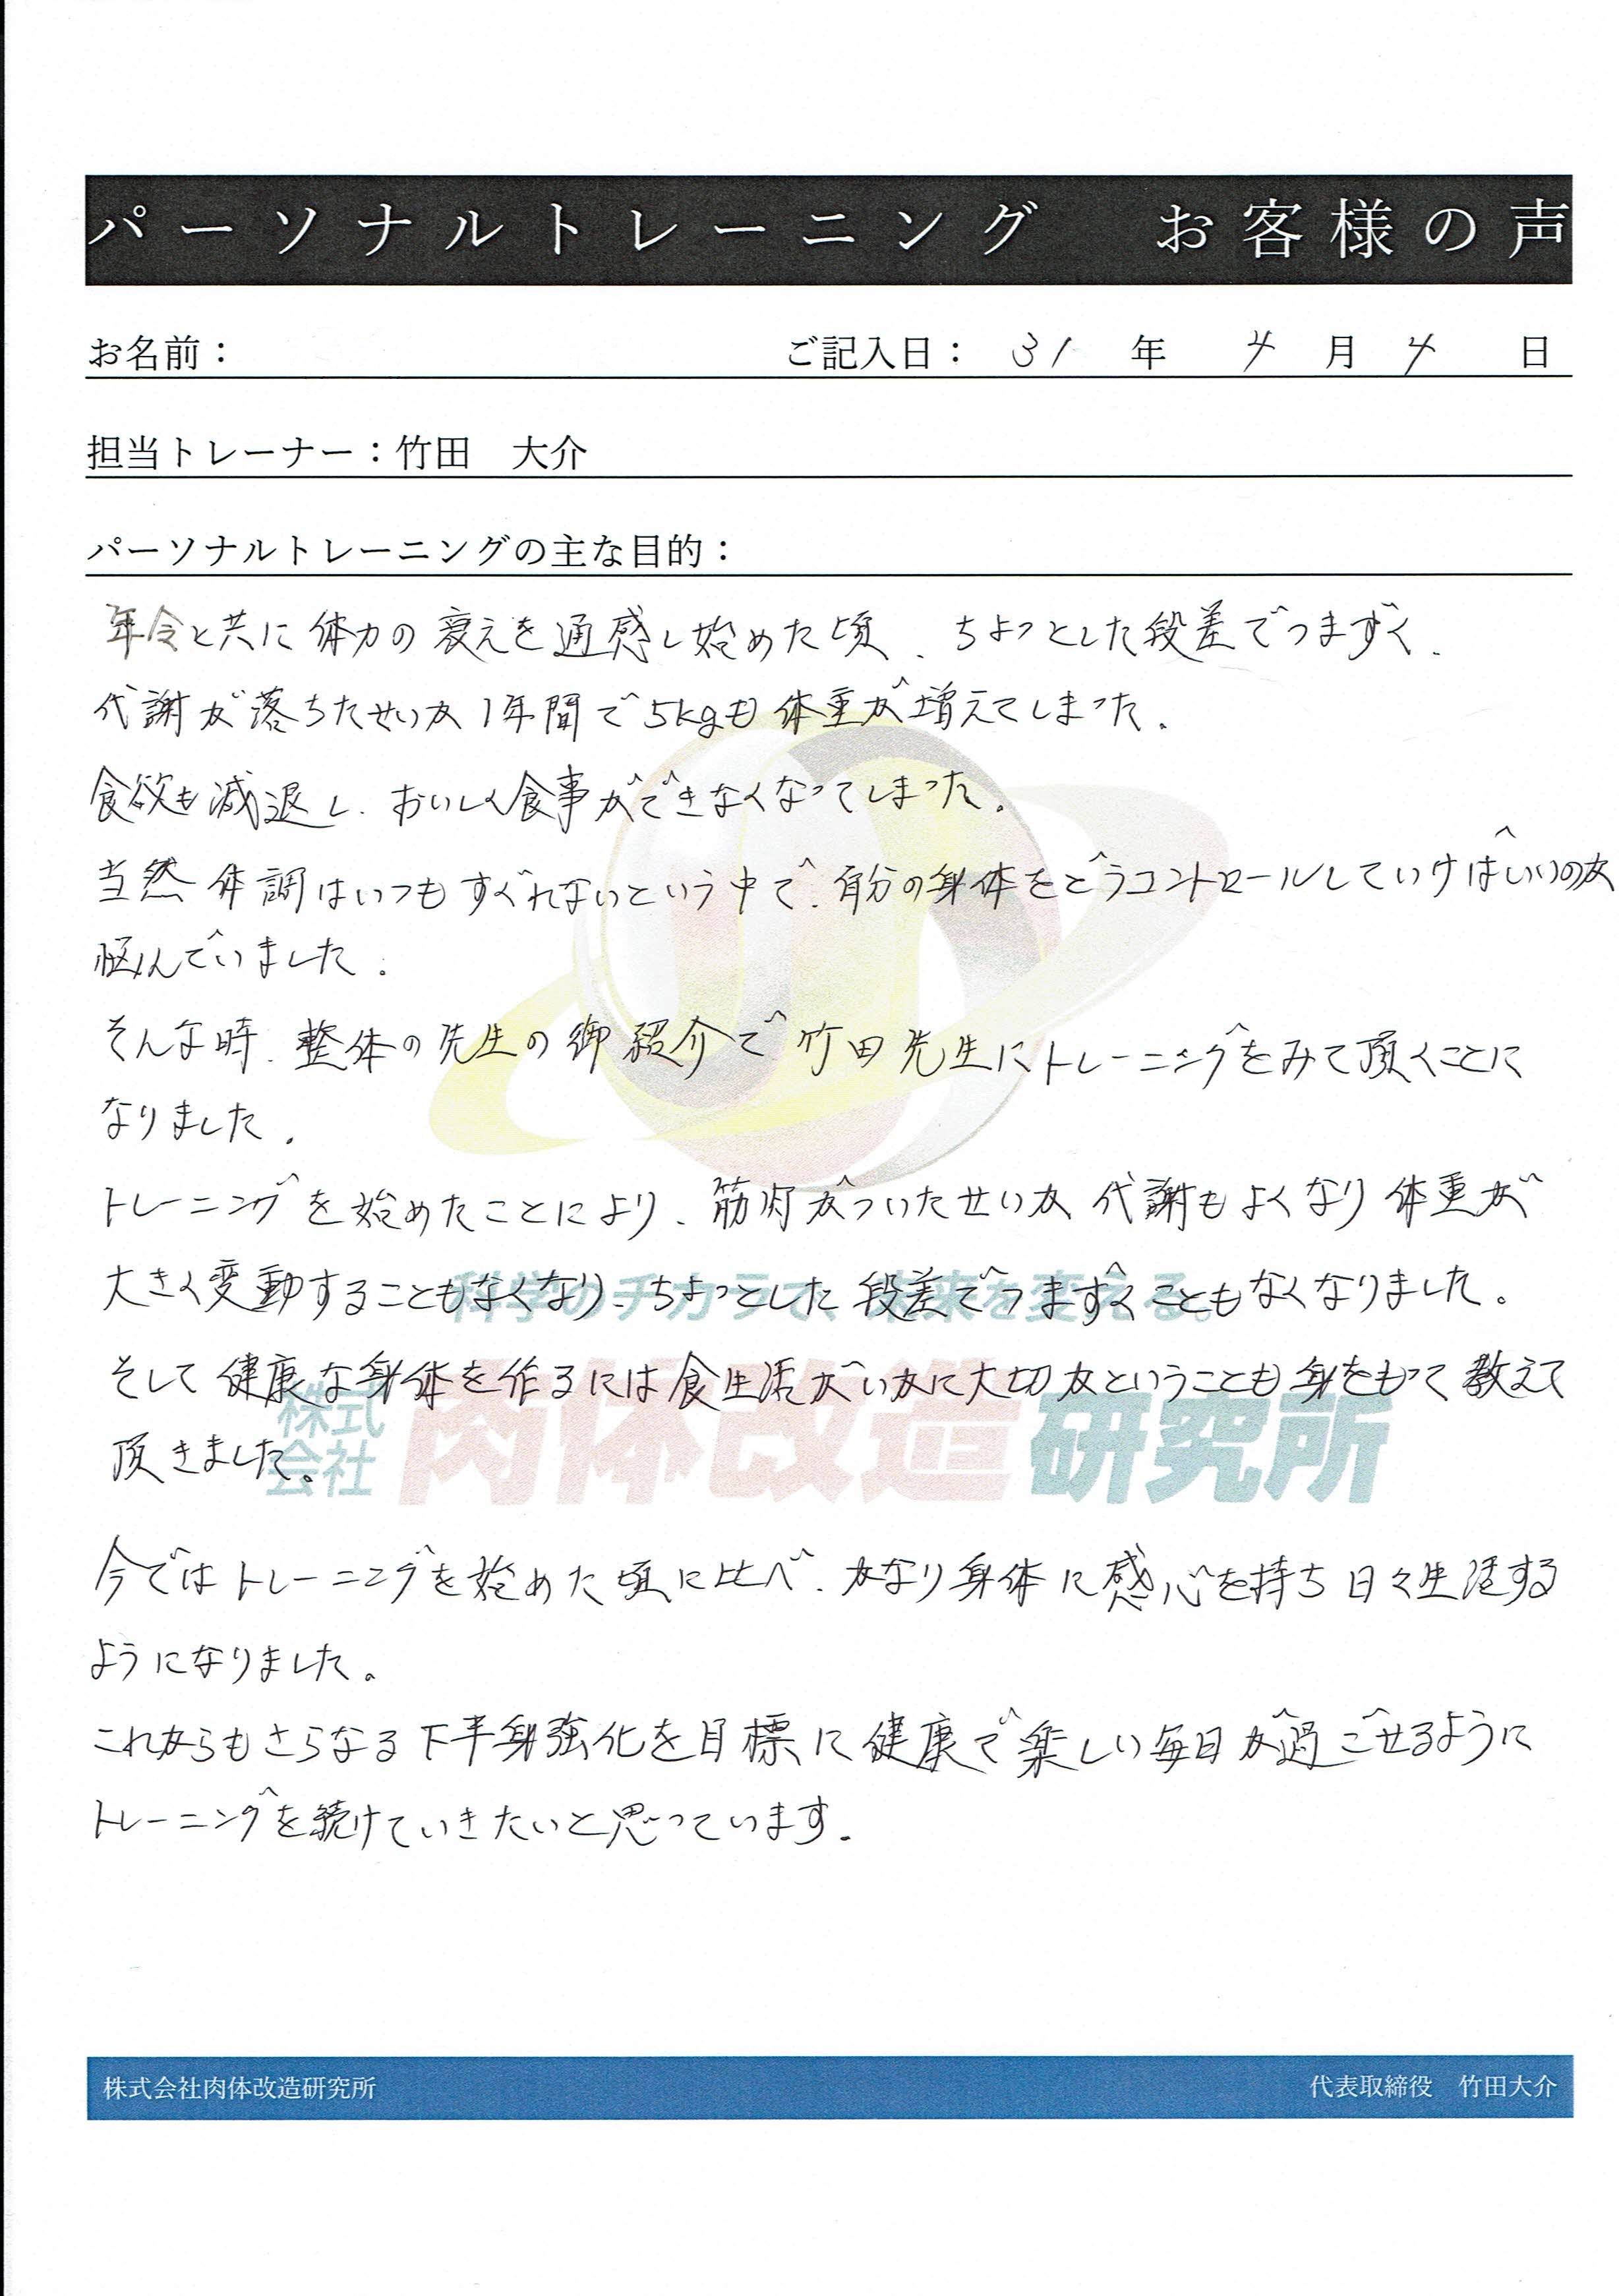 パーソナルトレーニング　お客様の声
お名前：　ご記入日：　31　年　4　月　4　日
担当トレーナー：竹田　大介
パーソナルトレーニングの主な目的：
年令と共に体力の衰えを通感し始めた頃、ちょっとした段差でつまずく、
代謝が落ちたせいか1年間で5kgも体重が増えてしまった。
食欲も減退し、おいしく食事ができなくなってしまった。
当然体調はいつもすぐれないという中で、自分の身体をどうコントロールしていけばいいのか
悩んでいました。
そんな時、整体の先生の御紹介で竹田先生にトレーニングをみて頂くことに
なりました。
トレーニングを始めたことにより、筋肉がついたせいか代謝もよくなり体重が
大きく変動することもなくなり、ちょっとした段差でつまずくこともなくなりました。
科学のチカラで、未来を変える。
そして健康な身体を作るには食生活がいかに大切かということも身をもって教えて
頂きました。
株式会社 肉体改造研究所
今ではトレーニングを始めた頃に比べ、かなり身体に感心を持ち日々生活する
ようになりました。
これからもさらなる下半身強化を目標に健康で楽しい毎日が過ごせるように
トレーニングを続けていきたいと思っています。
株式会社肉体改造研究所　代表取締役　竹田大介